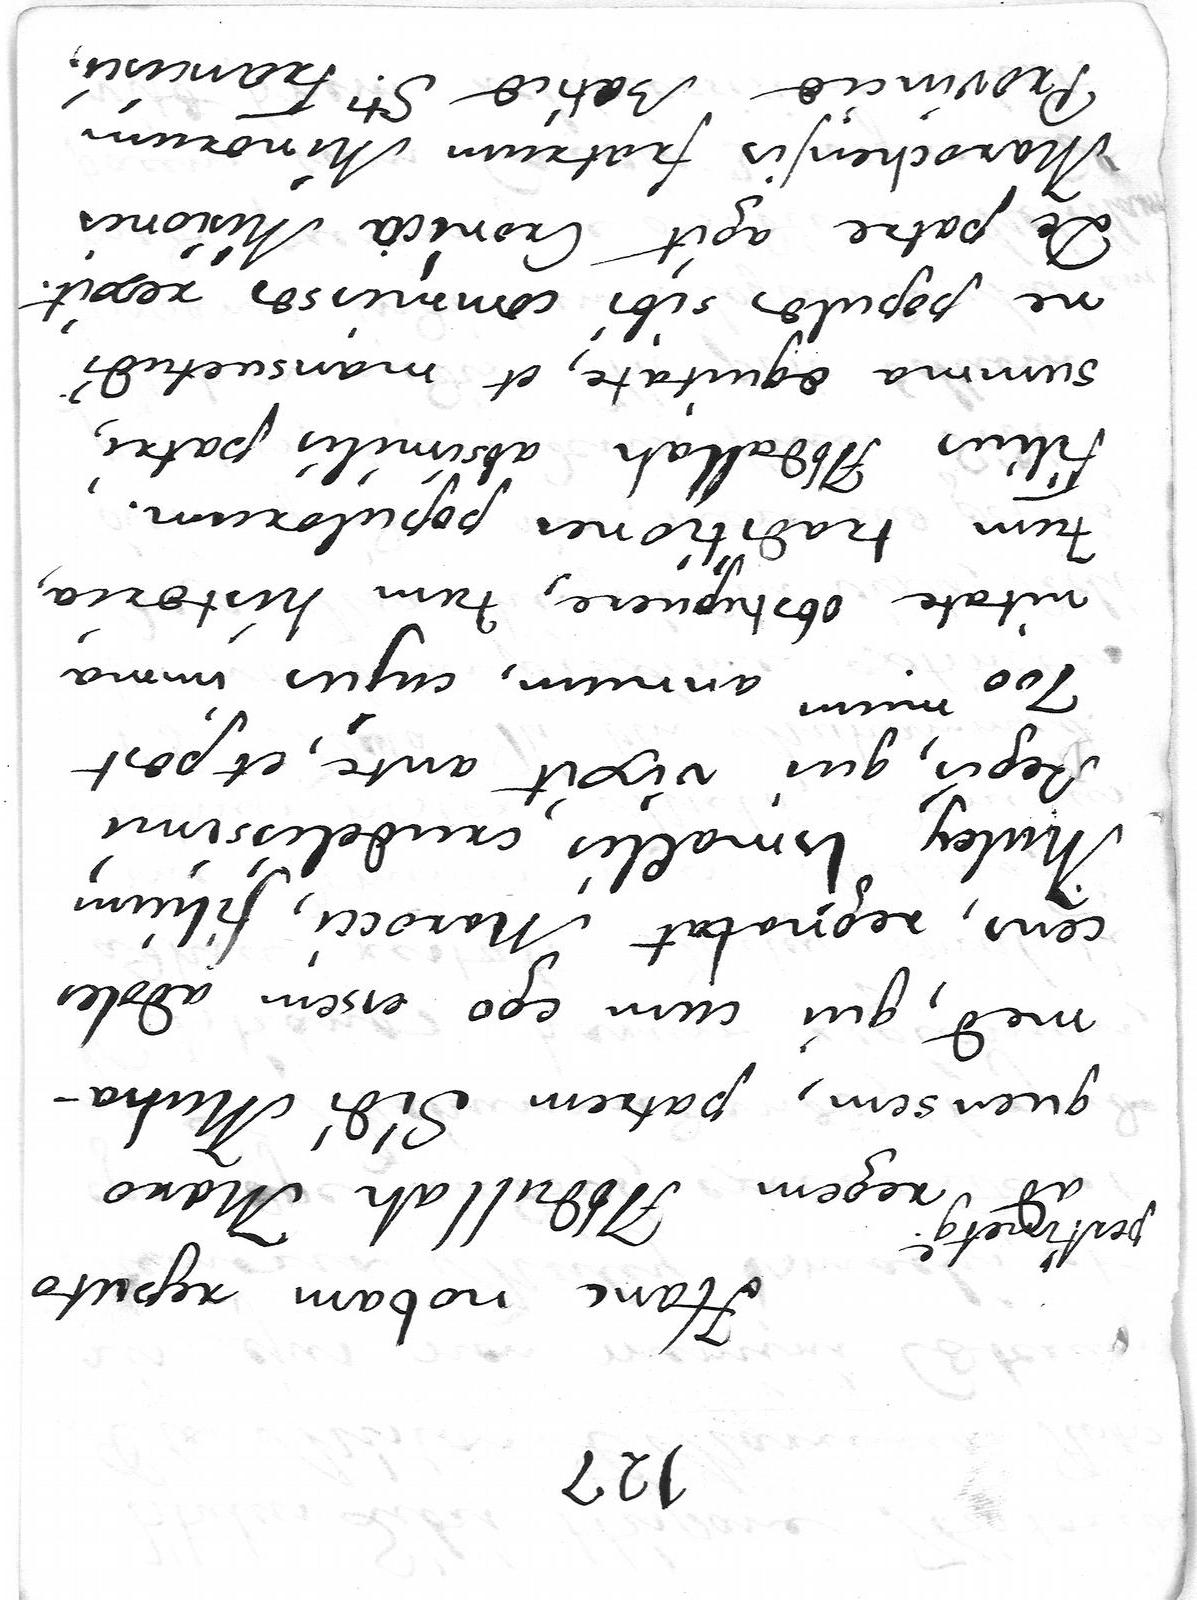 127
Hanc nobam reputo
pertinetq̃.
ad regem Abdullah Maro
quensem, patrem Sidi Muha-
med, qui cum ego essem addoles
cens, regnabat Marocii, filium
Muley Ismaelis, crudelissimi
Regis, qui vixit ante, et post
700 mum annum, cujus imma
nitate obstupuere, tum historia,
tum traditiones populorum.
Filius Abdallah absimilis patri,
summa equitate, et mansuetudi
ne populos sibi commissos rexit.
De patre agit Cronica Misiones
Marochensis fratrum Minorum
Provincie Betice Sti. Francisci,